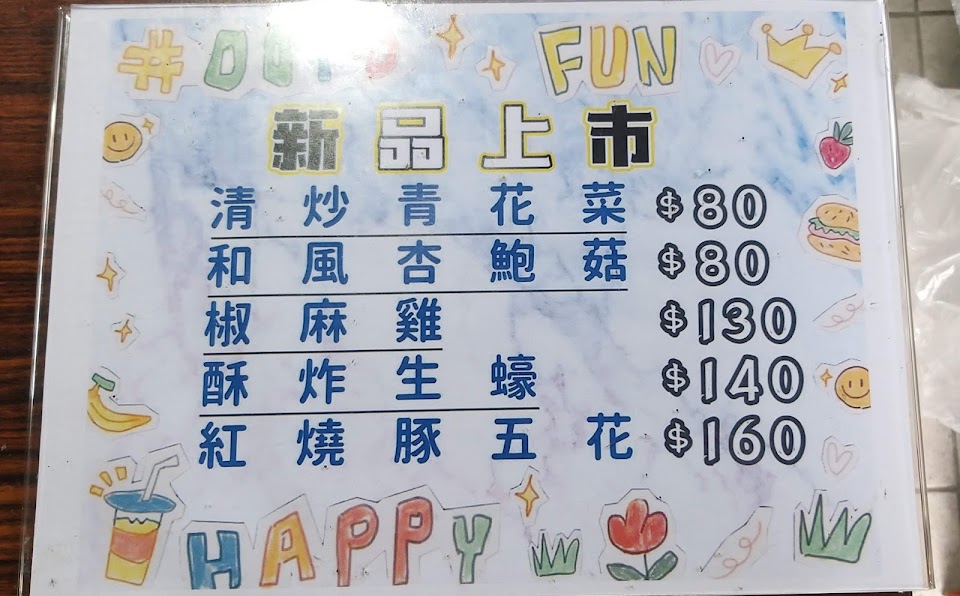 FUN
新品上市
清炒青花菜 $80
和風杏鮑菇 $80
椒麻雞 $130
酥炸生蠔 $140
紅燒豚五花 $160
HAPPY